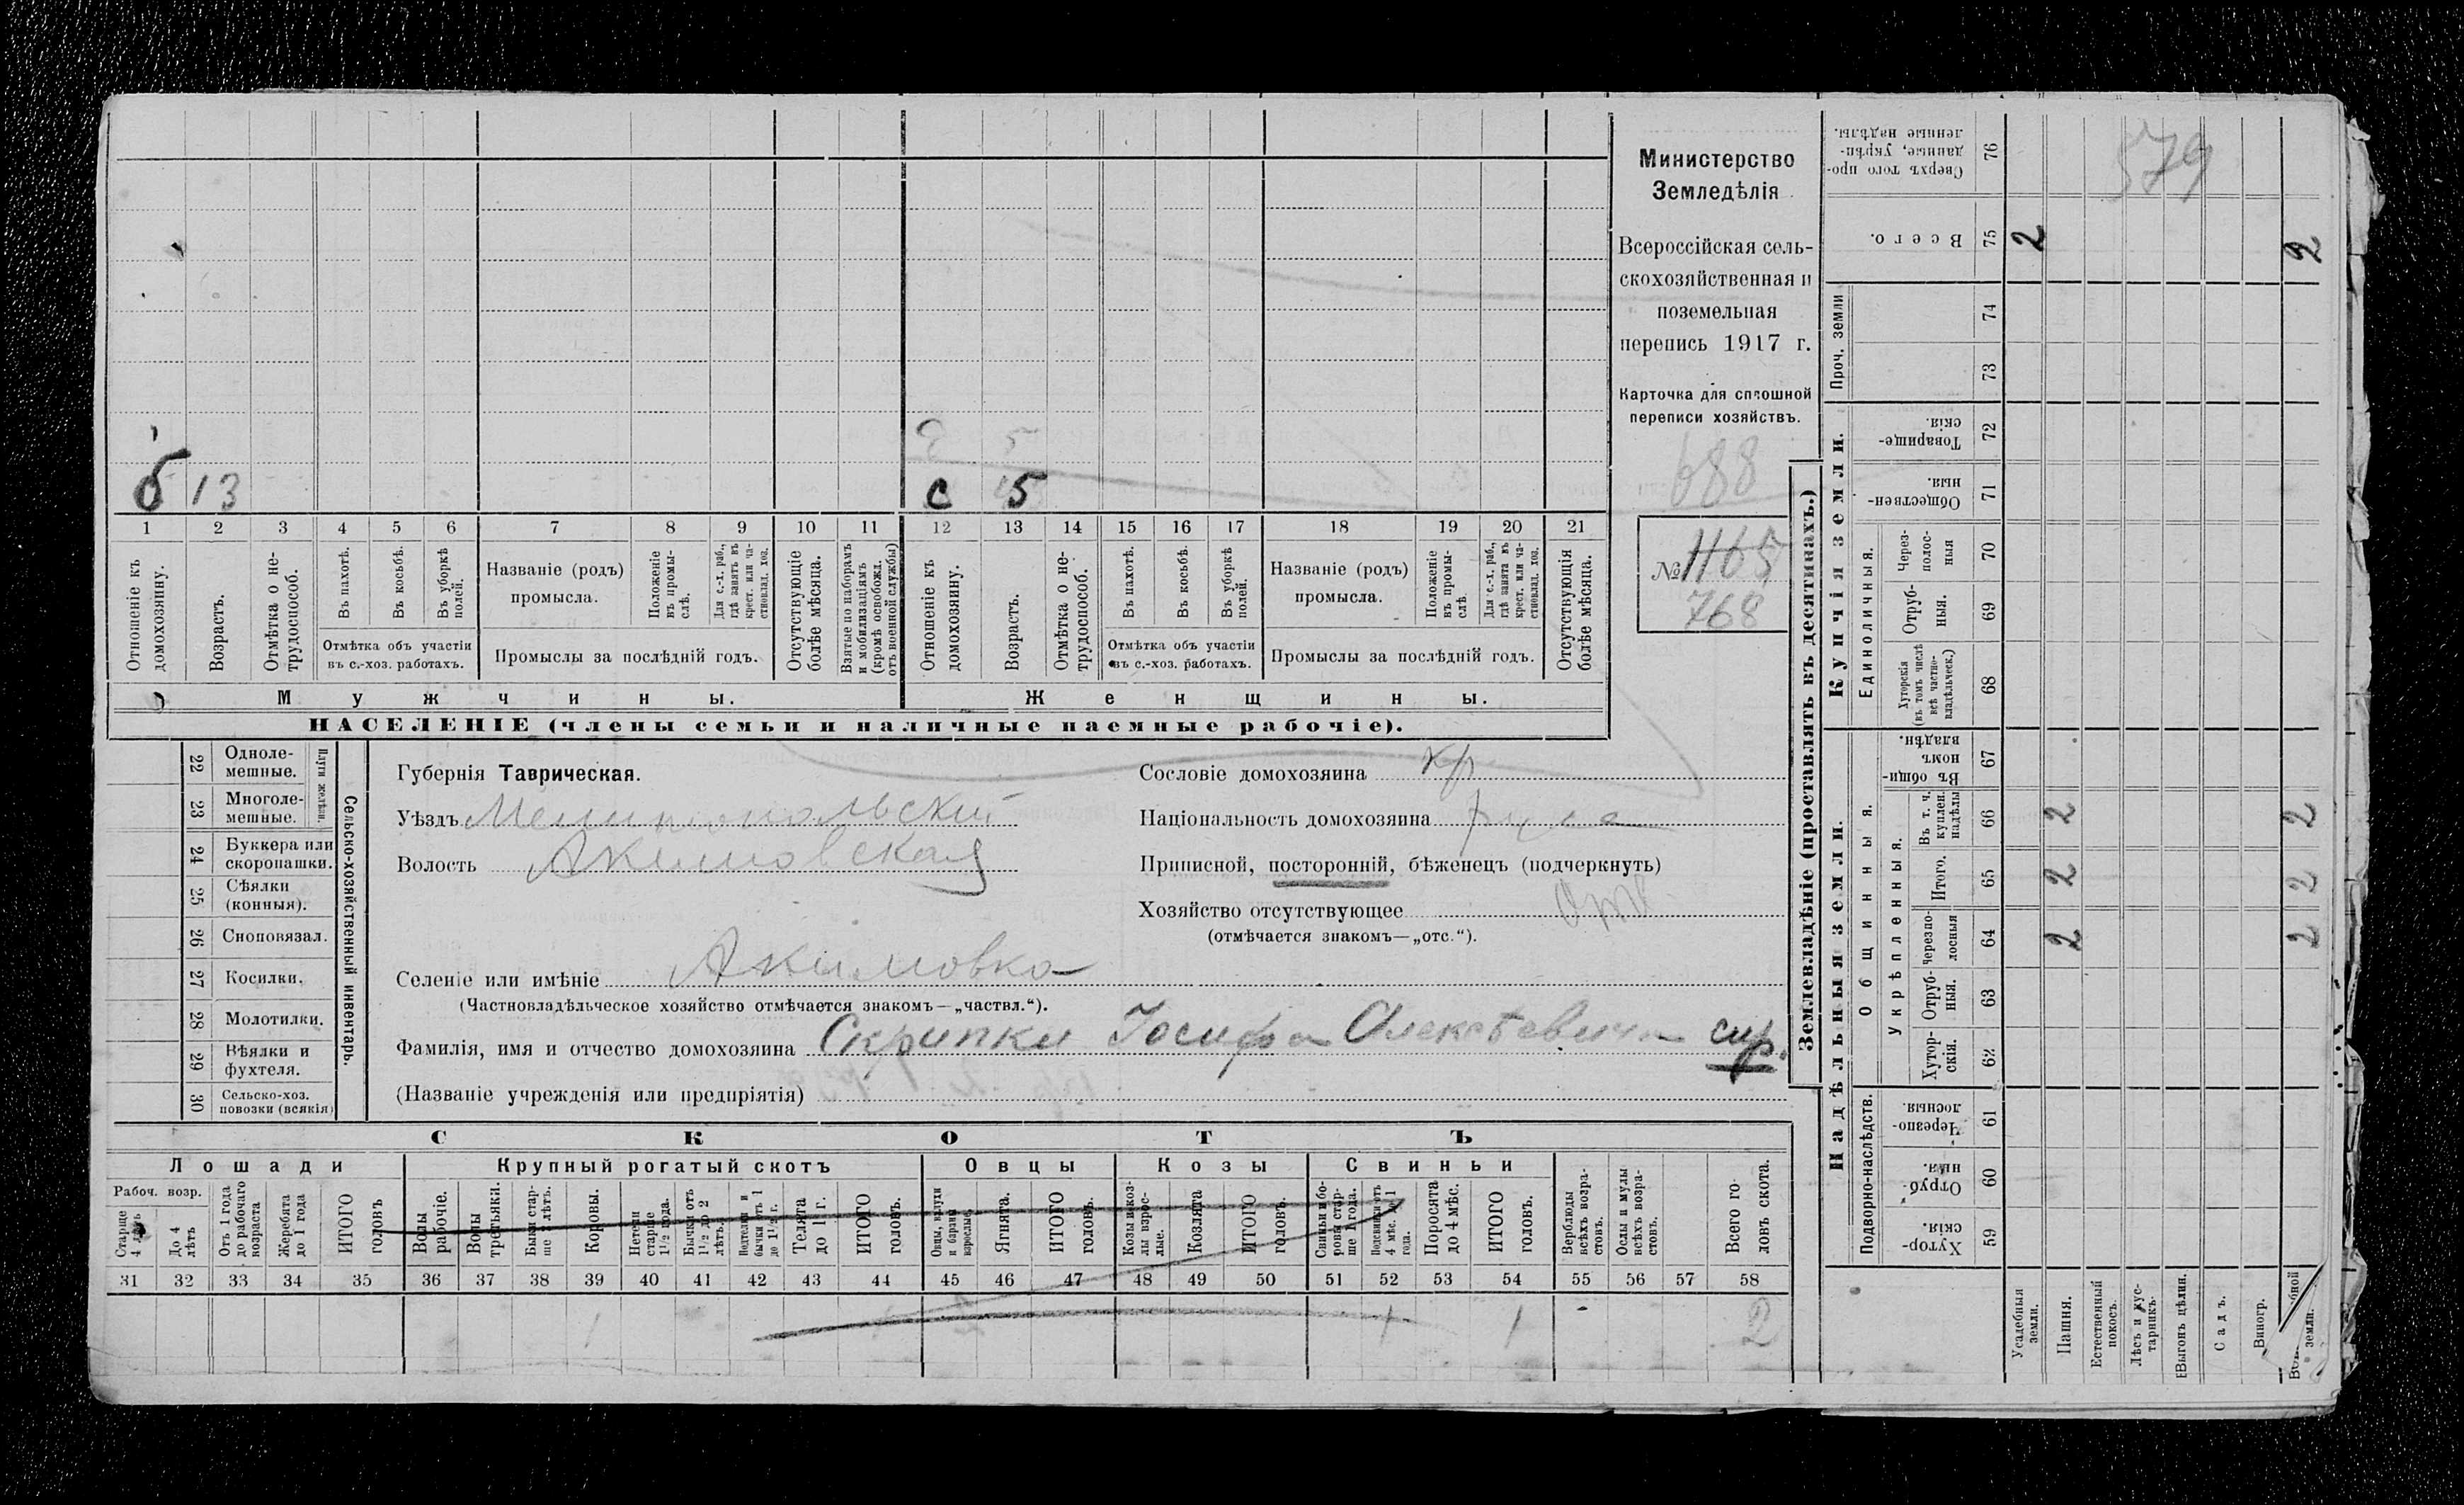 б 13
с 5
1 2 3 4 5 6 7 8 9 10 11 12 13 14 15 16 17 18 19 20 21
Отношеніе къ домохозяину.
Возрастъ.
Отмѣтка о не-трудоспособ.
Въ пахотѣ.
Въ косьбѣ.
Въ уборкѣ полей.
Отмѣтка объ участіи
въ с.-хоз. работахъ.
Названіе (родъ)
промысла.
Положеніе въ промы-слѣ.
Для с.-х. раб., гдѣ занятъ въ крест. или ча-стновлад. хоз.
Промыслы за послѣдній годъ.
Отсутствующіе болѣе мѣсяца.
Взятые по наборамъ и мобилизаціямъ (кромѣ освобожд. отъ военной службы)
Отношеніе къ домохозяину.
Возрастъ.
Отмѣтка о не-трудоспособ.
Въ пахотѣ.
Въ косьбѣ.
Въ уборкѣ полей.
Отмѣтка объ участіи
въ с.-хоз. работахъ.
Названіе (родъ)
промысла.
Положеніе въ промы-слѣ.
Для с.-х. раб., гдѣ занята въ крест. или ча-стновлад. хоз.
Промыслы за послѣдній годъ.
Отсутствующія болѣе мѣсяца.
Мужчины.
Женщины.
НАСЕЛЕНІЕ (члены семьи и наличные наемные рабочіе).
Министерство
Земледѣлія
Всероссійская сель-
скохозяйственная и
поземельная
перепись 1917 г.
Карточка для сплошной
переписи хозяйствъ.
688
№ 1165
768
Сельско-хозяйственный инвентарь.
Плуги желѣзн.
22 Одноле-мешные.
23 Многоле-мешные.
24 Буккера или скоропашки.
25 Сѣялки (конныя).
26 Сноповязал.
27 Косилки.
28 Молотилки.
29 Вѣялки и фухтеля.
30 Сельско-хоз. повозки (всякія)
Губернія Таврическая.
Уѣздъ Мелитопольскій
Волость Акимовская
Селеніе или имѣніе Акимовка
(Частновладѣльческое хозяйство отмѣчается знакомъ—„частвл.“).
Сословіе домохозяина кр
Національность домохозяина
Приписной, посторонній, бѣженецъ (подчеркнуть)
Хозяйство отсутствующее
(отмѣчается знакомъ—„отс.“).
Фамилія, имя и отчество домохозяина Скрипки Іосифа Алексѣевича сир.
(Названіе учрежденія или предпріятія)
СКОТЪ
Лошади
Крупный рогатый скотъ
Овцы
Козы
Свиньи
Рабоч. возр.
Старше 4 лѣтъ
До 4 лѣтъ
Отъ 1 года до рабочаго возраста
Жеребята до 1 года
ИТОГО головъ
Волы рабочіе.
Волы третьяки.
Быки стар-ше 2 лѣтъ.
Коровы.
Нетели старше 1½ года.
Бычки отъ 1½ до 2 лѣтъ.
Нетелки и бычки отъ 1 до 1½ г.
Телята до 1 г.
ИТОГО головъ.
Овцы, валухи и бараны взрослые.
Ягнята.
ИТОГО головъ.
Козы и коз-лы взрос-лые.
Козлята
ИТОГО головъ.
Свиньи и бо-ровы стар-ше 1 года.
Подсвинки отъ 4 мѣс. до 1 года.
Поросята до 4 мѣс.
ИТОГО головъ.
Верблюды всѣхъ возра-стовъ.
Ослы и мулы всѣхъ возра-стовъ.
Всего го-ловъ скота.
31 32 33 34 35 36 37 38 39 40 41 42 43 44 45 46 47 48 49 50 51 52 53 54 55 56 57 58
1 1 1 1 2
Землевладѣніе (проставлять въ десятинахъ.)
Купчія земли.
Надѣльныя земли.
Проч. земли
Единоличныя.
Общинныя.
Укрѣпленныя.
Подворно-наслѣдств.
Сверхъ того про-данные, укрѣп-ленные надѣлы. 76
579
Всего. 75 2 2
74
73
Товарище-скія. 72
Обществен-ныя. 71
Через-полос-ныя 70
Отруб-ныя. 69
Хуторскія (въ томъ числѣ всѣ частно-владѣльческ.) 68
Въ общи-номъ владѣн. 67
Въ т. ч. куплен. надѣлы 66 2 2
Итого. 65 2 2
Черезпо-лосныя 64 2 2
Отруб-ныя. 63
Хутор-скія. 62
Черезпо-лосныя. 61
Отруб-ныя. 60
Хутор-скія. 59
Усадебныя земли.
Пашня.
Естественный покосъ.
Лѣсъ и кус-тарникъ.
Выгонъ цѣлин.
Садъ.
Виногр.
земли.